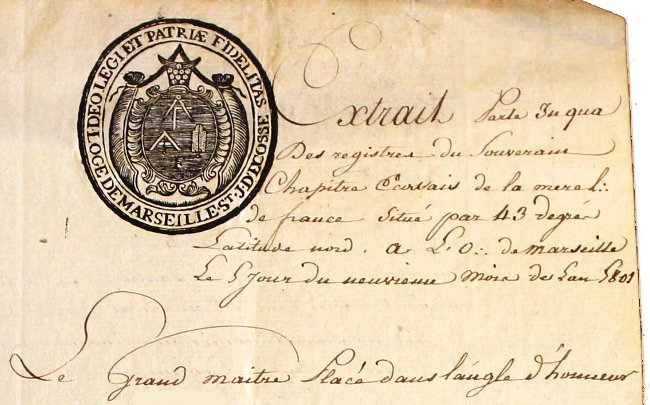 DEO LEGI ET PATRIÆ FIDELITAS
LOGE DE MARSEILLE · ST · J · D'ECOSSE
Extrait Parte In qua
Des registres du Souverain
Chapitre Ecossais de la mere l∴
de france situé par 43 degrés
Latitude nord. a L'O∴ de marseille
Le 5 Jour du neuvieme Mois de Lan 5801
Le Grand maitre Placé dans l'angle d'honneur